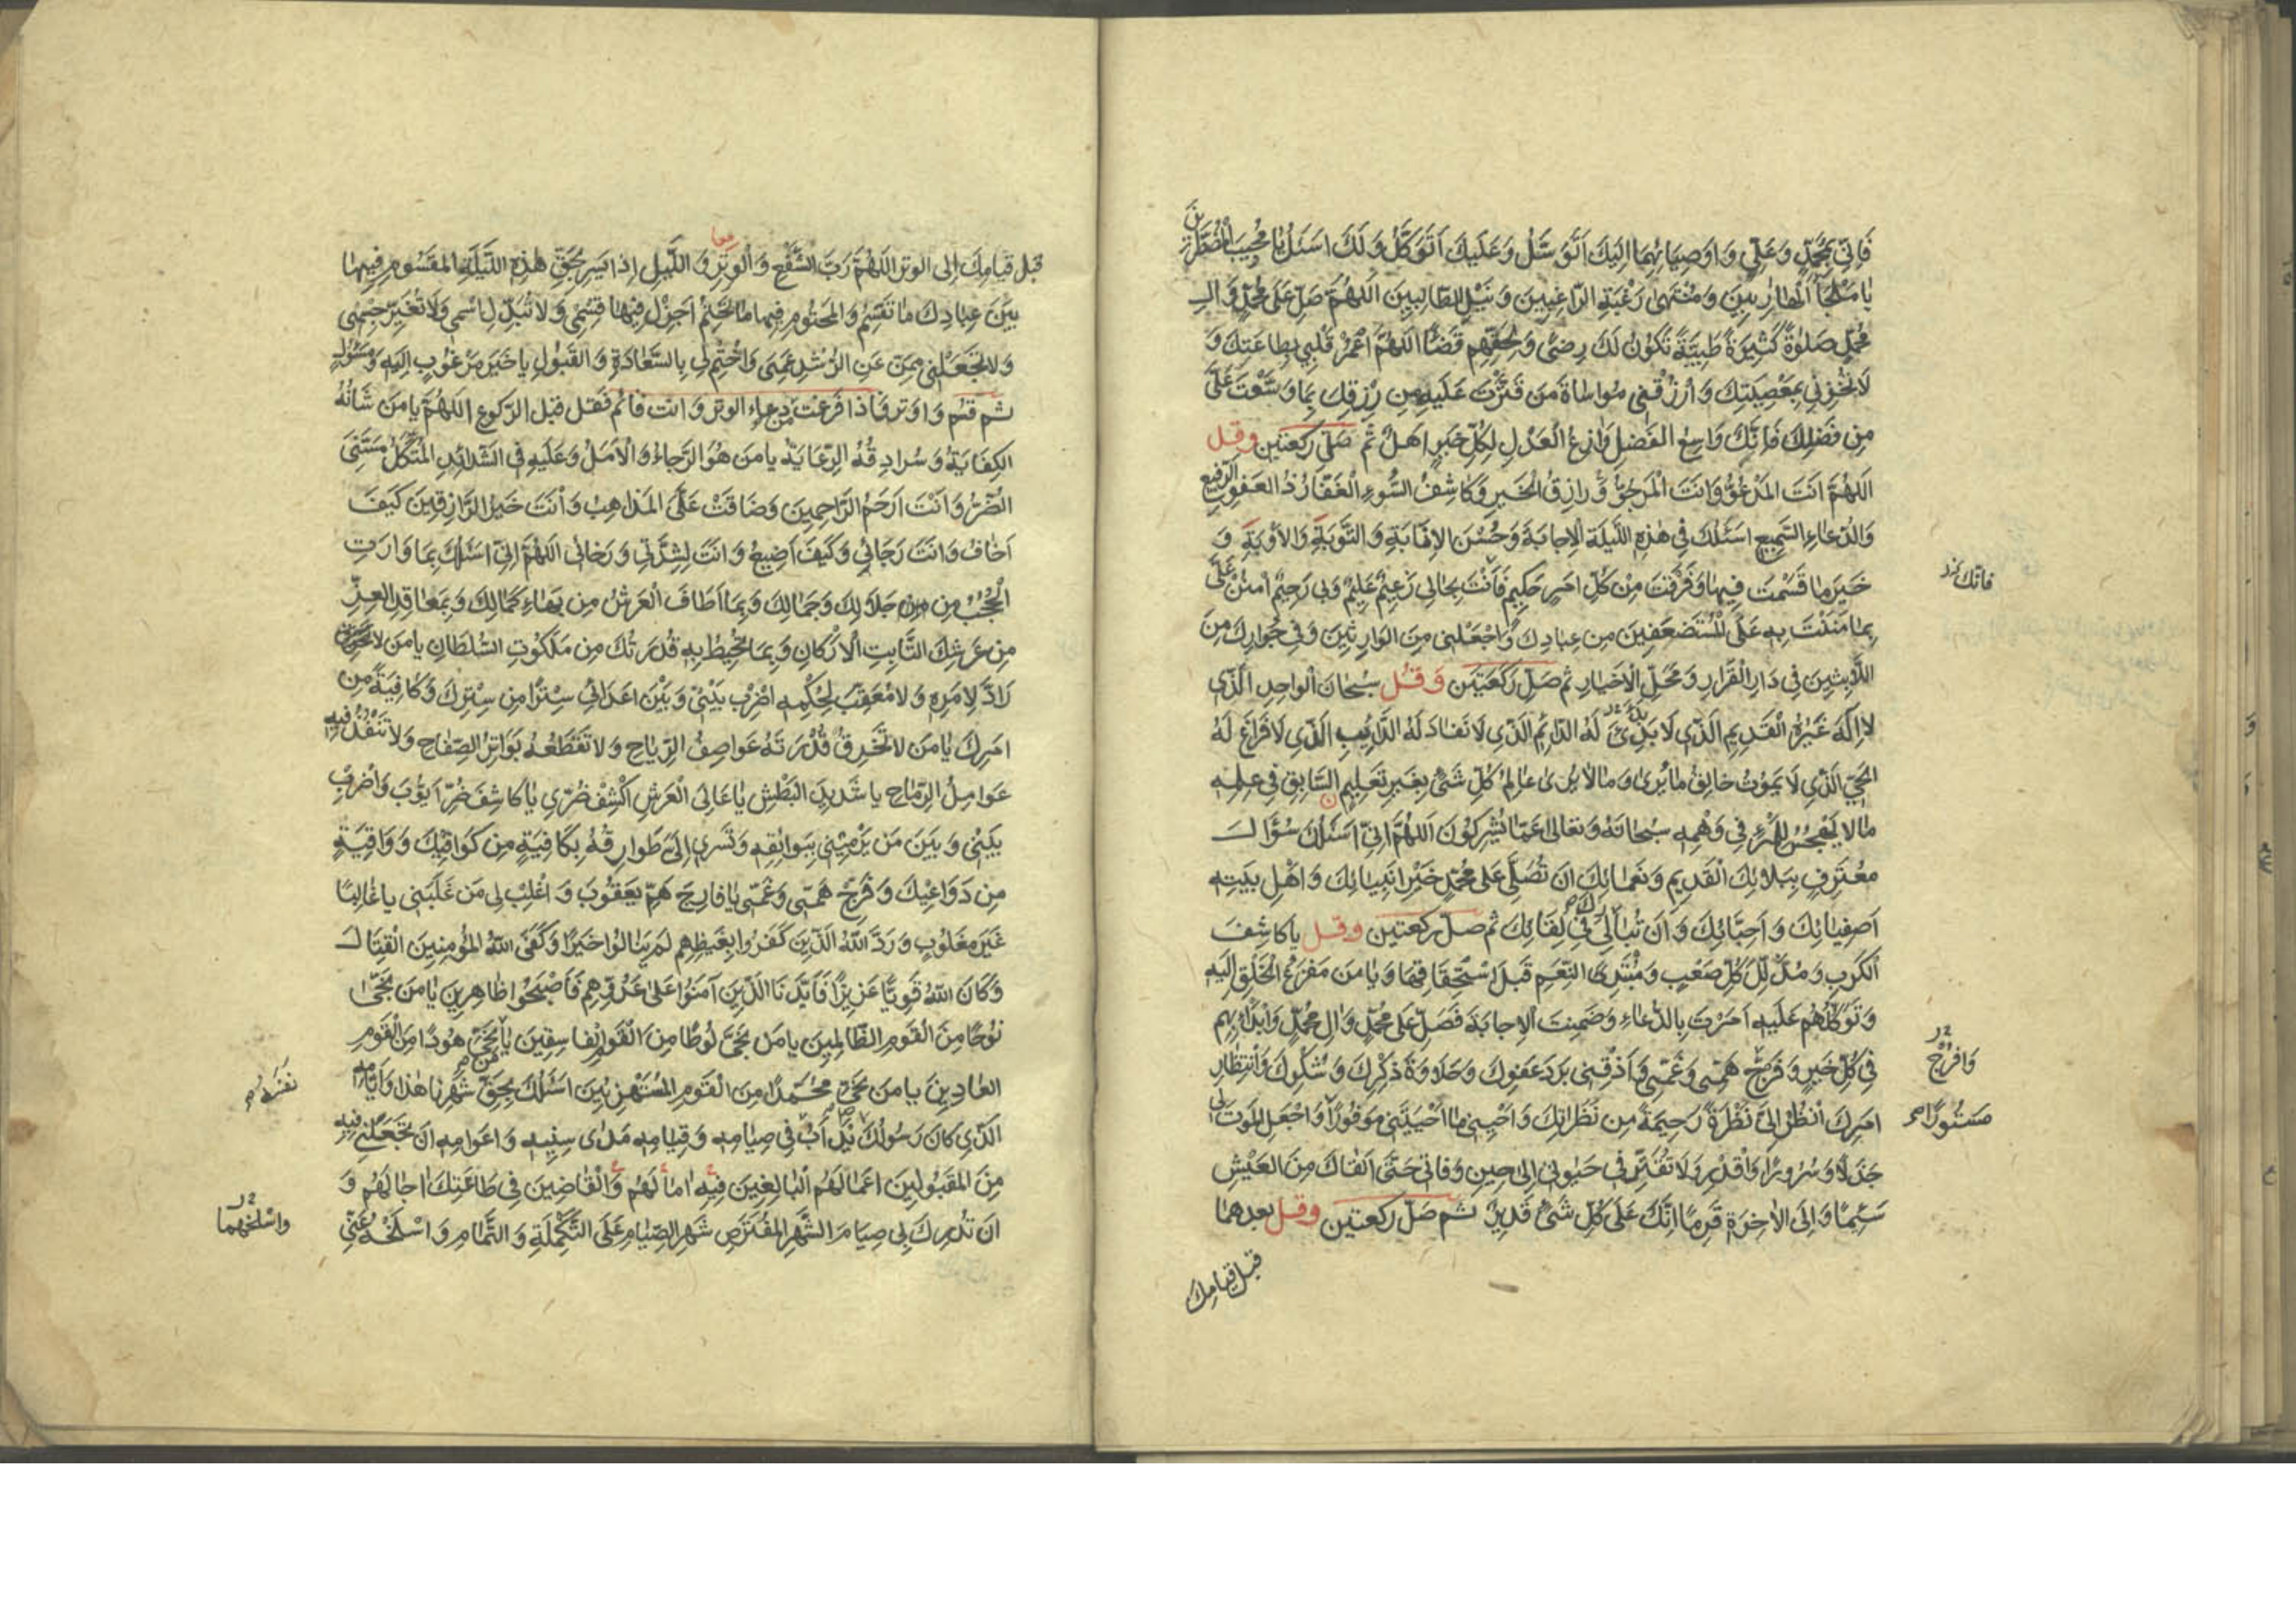 فَاِنّي بِمُحَمَّدٍ وَعَلِيٍّ وَاَوصِيائِهِما اِلَيكَ اَتَوَسَّلُ وَعَلَيكَ اَتَوَكَّلُ وَلَكَ اَسئَلُ يا مُجيبَ المُضطَرّينَ
يا مَلجَأَ الهارِبينَ وَمُنتَهى رَغبَةِ الرّاغِبينَ وَنَيلِ الطّالِبينَ اَللّهُمَّ صَلِّ عَلى مُحَمَّدٍ وَالِ
مُحَمَّدٍ صَلوةً كَثيرَةً طَيِّبَةً تَكُونُ لَكَ رِضىً وَلِحَقِّهِم قَضاءً اَللّهُمَّ اعمُر قَلبي بِطاعَتِكَ وَ
لا تُخزِني بِمَعصِيَتِكَ وَارزُقني مُواساةَ مَن قَتَّرتَ عَلَيهِ مِن رِزقِكَ بِما وَسَّعتَ عَلَيَّ
مِن فَضلِكَ فَاِنَّكَ واسِعُ الفَضلِ وازِعُ العَدلِ لِكُلِّ خَيرٍ اَهلٌ ثم صَلّى ركعتين وقل
اَللّهُمَّ اَنتَ المَدعُوُّ وَاَنتَ المَرجُوُّ وَرازِقُ الخَيرِ وَكاشِفُ السُّوءِ الغَفّارُ ذُو العَفوِ الرَّفيعِ
وَالدُّعاءِ السَّميعِ اَسئَلُكَ في هذِهِ اللَّيلَةِ الاِجابَةَ وَحُسنَ الاِنابَةِ وَالتَّوبَةِ وَالاَوبَةِ وَ
خَيرَ ما قَسَمتَ فيها وَفَرَقتَ مِن كُلِّ اَمرٍ حَكيمٍ فَاَنتَ بِحالي زَعيمٌ عَليمٌ وَبي رَحيمٌ اُمنُن عَلَيَّ
فانّك
بِما مَنَنتَ بِه عَلَى المُستَضعَفينَ مِن عِبادِكَ وَاجعَلني مِنَ الوارِثينَ وَفي جِوارِكَ مِنَ
اللّابِثينَ في دارِ القَرارِ وَمَحَلِّ الاَخيارِ ثم صَلّ رَكعَتَين وَقُل سُبحانَ الواحِدِ الَّذي
لا اِلهَ غَيرُهُ القَديمِ الَّذي لا بَدِيءَ لَهُ الدّائِمِ الَّذي لا نَفادَ لَهُ الدّائِبِ الَّذي لا فَراغَ لَهُ
الحَيِّ الَّذي لا يَموُتُ خالِقِ ما يُرى وَما لا يُرى عالِمِ كُلِّ شَيءٍ بِغَيرِ تَعليمٍ السّابِقِ في عِلمِهِ
ما لا يَهجُسُ لِلمَرءِ في وَهمِهِ سُبحانَهُ وَتَعالى عَمّا يُشرِكُونَ اَللّهُمَّ اِنّي اَسئَلُكَ سُؤالَ
مُعتَرِفٍ بِبَلائِكَ القَديمِ وَنَعمائِكَ اَن تُصَلِّيَ عَلى مُحَمَّدٍ خَيرِ اَنبِيائِكَ وَاَهلِ بَيتِهِ
اَصفِيائِكَ وَاَحِبّائِكَ وَاَن تُبارِكَ لي في لِقائِكَ ثم صلّ ركعتين وقل يا كاشِفَ
الكَربِ وَمُذَلِّلَ كُلِّ صَعبٍ وَمُبتَدِئَ النِّعَمِ قَبلَ استِحقاقِها وَيا مَن مَفزَعُ الخَلقِ اِلَيهِ
وَتَوَكُّلُهُم عَلَيهِ اَمَرتَ بِالدُّعاءِ وَضَمِنتَ الاِجابَةَ فَصَلِّ عَلى مُحَمَّدٍ وَالِ مُحَمَّدٍ وَابدَأ بِهِم
في كُلِّ خَيرٍ وَفَرِّج هَمّي وَغَمّي وَاَذِقني بَردَ عَفوِكَ وَحَلاوَةَ ذِكرِكَ وَشُكرِكَ وَانتِظارِ
وَافرُج
اَمرِكَ اُنظُر اِلَيَّ نَظرَةً رَحيمَةً مِن نَظَراتِكَ وَاَحيِني ما اَحيَيتَني مَوفُورًا وَاجعَلِ المَوتَ لي
مَستُورًا
جَذَلًا وَسُرُورًا وَاقدِر وَلا تُقَتِّر في حَيوتي اِلى حينِ وَفاتي حَتّى اَلقاكَ مِنَ العَيشِ
سَئِمًا وَاِلَى الاخِرَةِ قَرِمًا اِنَّكَ عَلى كُلِّ شَيءٍ قَديرٌ ثم صَلّ ركعتين وقل بعدهما
قبل قيامك
قبل قيامك إلى الوتر اَللّهُمَّ رَبَّ الشَّفعِ وَالوَترِ وَاللَّيلِ اِذا يَسرِ بِحَقِّ هذِهِ اللَّيلَةِ المَقسُومِ فيها
معا
بَينَ عِبادِكَ ما تَقسِمُ وَالمَحتُومِ فيها ما تَحتِمُ اَجزِل فيها قِسمي وَلا تُبَدِّلِ اسمي وَلا تُغَيِّر جِسمي
وَلا تَجعَلني مِمَّن عَنِ الرُّشدِ عَمِيَ وَاختِم لي بِالسَّعادَةِ وَالقَبُولِ يا خَيرَ مَرغُوبٍ اِلَيهِ وَمَسئُولٍ
ثم قم وَاوتر فاذا فَرغت من دعاء الوتر وانت قائم فَقل قبل الركوع اَللّهُمَّ يا مَن شَانُهُ
الكِفايَةُ وَسُرادِقُهُ الرِّعايَةُ يا مَن هُوَ الرَّجاءُ وَالاَمَلُ وَعَلَيهِ فِي الشَّدائِدِ المُتَّكَلُ مَسَّنِيَ
الضُّرُّ وَاَنتَ اَرحَمُ الرّاحِمينَ وَضاقَت عَلَيَّ المَذاهِبُ وَاَنتَ خَيرُ الرّازِقينَ كَيفَ
اَخافُ وَاَنتَ رَجائي وَكَيفَ اَضيعُ وَاَنتَ لِشِدَّتي وَرَخائي اَللّهُمَّ اِنّي اَسئَلُكَ بِما وارَتِ
الحُجُبُ مِن جَلالِكَ وَجَمالِكَ وَبِما اَطافَ العَرشُ مِن بَهاءِ كَمالِكَ وَبِمَعاقِدِ العِزِّ
مِن عَرشِكَ الثّابِتِ الاَركانِ وَبِما تُحيطُ بِه قُدرَتُكَ مِن مَلَكُوتِ السُّلطانِ يا مَن لا
رادَّ لِاَمرِهِ وَلا مُعَقِّبَ لِحُكمِهِ اِضرِب بَيني وَبَينَ اَعدائي سِترًا مِن سِترِكَ وَكافِيَةً مِن
اَمرِكَ يا مَن لا تَخرِقُ قُدرَتَهُ عَواصِفُ الرِّياحِ وَلا تَقطَعُهُ بَواتِرُ الصِّفاحِ وَلا تَنفُذُ فيهِ
عَوامِلُ الرِّماحِ يا شَديدَ البَطشِ يا عالِيَ العَرشِ اكشِف ضُرّي يا كاشِفَ ضُرِّ اَيُّوبَ وَاضرِب
بَيني وَبَينَ مَن يَرميني بِبَوائِقِهِ وَتَسري اِلَيَّ طَوارِقُهُ بِكافِيَةٍ مِن كَوافيكَ وَواقِيَةٍ
مِن دَواعيكَ وَفَرِّج هَمّي وَغَمّي يا فارِجَ هَمِّ يَعقُوبَ وَاغلِب لي مَن غَلَبَني يا غالِبًا
غَيرَ مَغلُوبٍ وَرَدَّ اللّهُ الَّذينَ كَفَرُوا بِغَيظِهِم لَم يَنالُوا خَيرًا وَكَفَى اللّهُ المُؤمِنينَ القِتالَ
وَكانَ اللّهُ قَوِيًّا عَزيزًا فَاَيَّدنَا الَّذينَ آمَنُوا عَلى عَدُوِّهِم فَاَصبَحُوا ظاهِرينَ يا مَن نَجّى
نُوحًا مِنَ القَومِ الظّالِمينَ يا مَن نَجّى لُوطًا مِنَ القَومِ الفاسِقينَ يا مَن نَجّى هُودًا مِنَ القَومِ
العادينَ يا مَن نَجّى مُحَمَّدًا مِنَ القَومِ المُستَهزِئينَ اَسئَلُكَ بِحَقِّ شَهرِنا هذا وَاَيّامِهِ
الَّذي كانَ رَسُولُكَ يَداَبُ في صِيامِهِ وَقِيامِهِ مَدى سِنيهِ وَاَعوامِهِ اَن تَجعَلَني فيهِ
مِنَ المَقبُولينَ اَعمالُهُم البالِغينَ فيهِ امالَهُم وَالقاضينَ في طاعَتِكَ اجالَهُم وَ
اَن تُدرِكَ بي صِيامَ الشَّهرِ المُفتَرَضِ شَهرِ الصِّيامِ عَلَى التَّكمِلَةِ وَالتَّمامِ وَاسلَخهُ عَنّي
واسلخهما